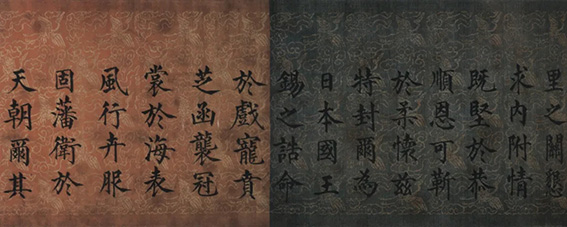 里之關懇
求內附情
既堅於恭
順恩可靳
於柔懷茲
特封爾為
日本國王
錫之誥命
於戲寵賁
芝函襲冠
裳於海表
風行卉服
固藩衛於
天朝爾其